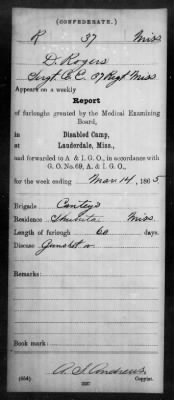 (CONFEDERATE.)
R 37 Miss
D. Rogers
Sergt Co. E. 37 Regt Miss
Appears on a weekly
Report
of furloughs granted by the Medical Examining
Board,
in Disabled Camp,
at Lauderdale, Miss.,
and forwarded to A. & I. G. O., in accordance with
G. O. No. 69, A. & I. G. O.,
for the week ending Mar 14, 1865
Brigade Canteys
Residence Shubuta Miss
Length of furlough 60 days.
Disease Gunshot w
Remarks:
Book mark:
A. S. Andrews
(654) Copyist.